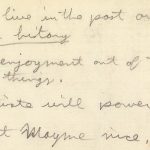 live in the past or
history
enjoyment out of
things.
will power
t Mayme nice,